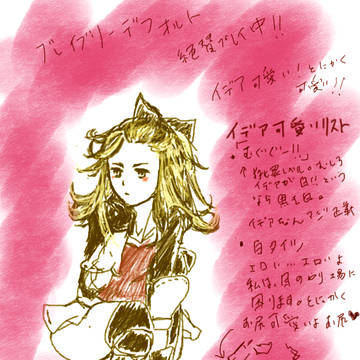 ブレイブリーデフォルト
絶賛プレイ中!!
イデア可愛い!とにかく
可愛い!!
イデア可愛いリスト
・「むぐぐー!!」
イデアが白!!という
なら黒も白。
イデアなんマジ正義
・白タイツ
エロい…エロいよ
私は、目のやり場に
困ります。とにかく
お尻可愛いよお尻♥